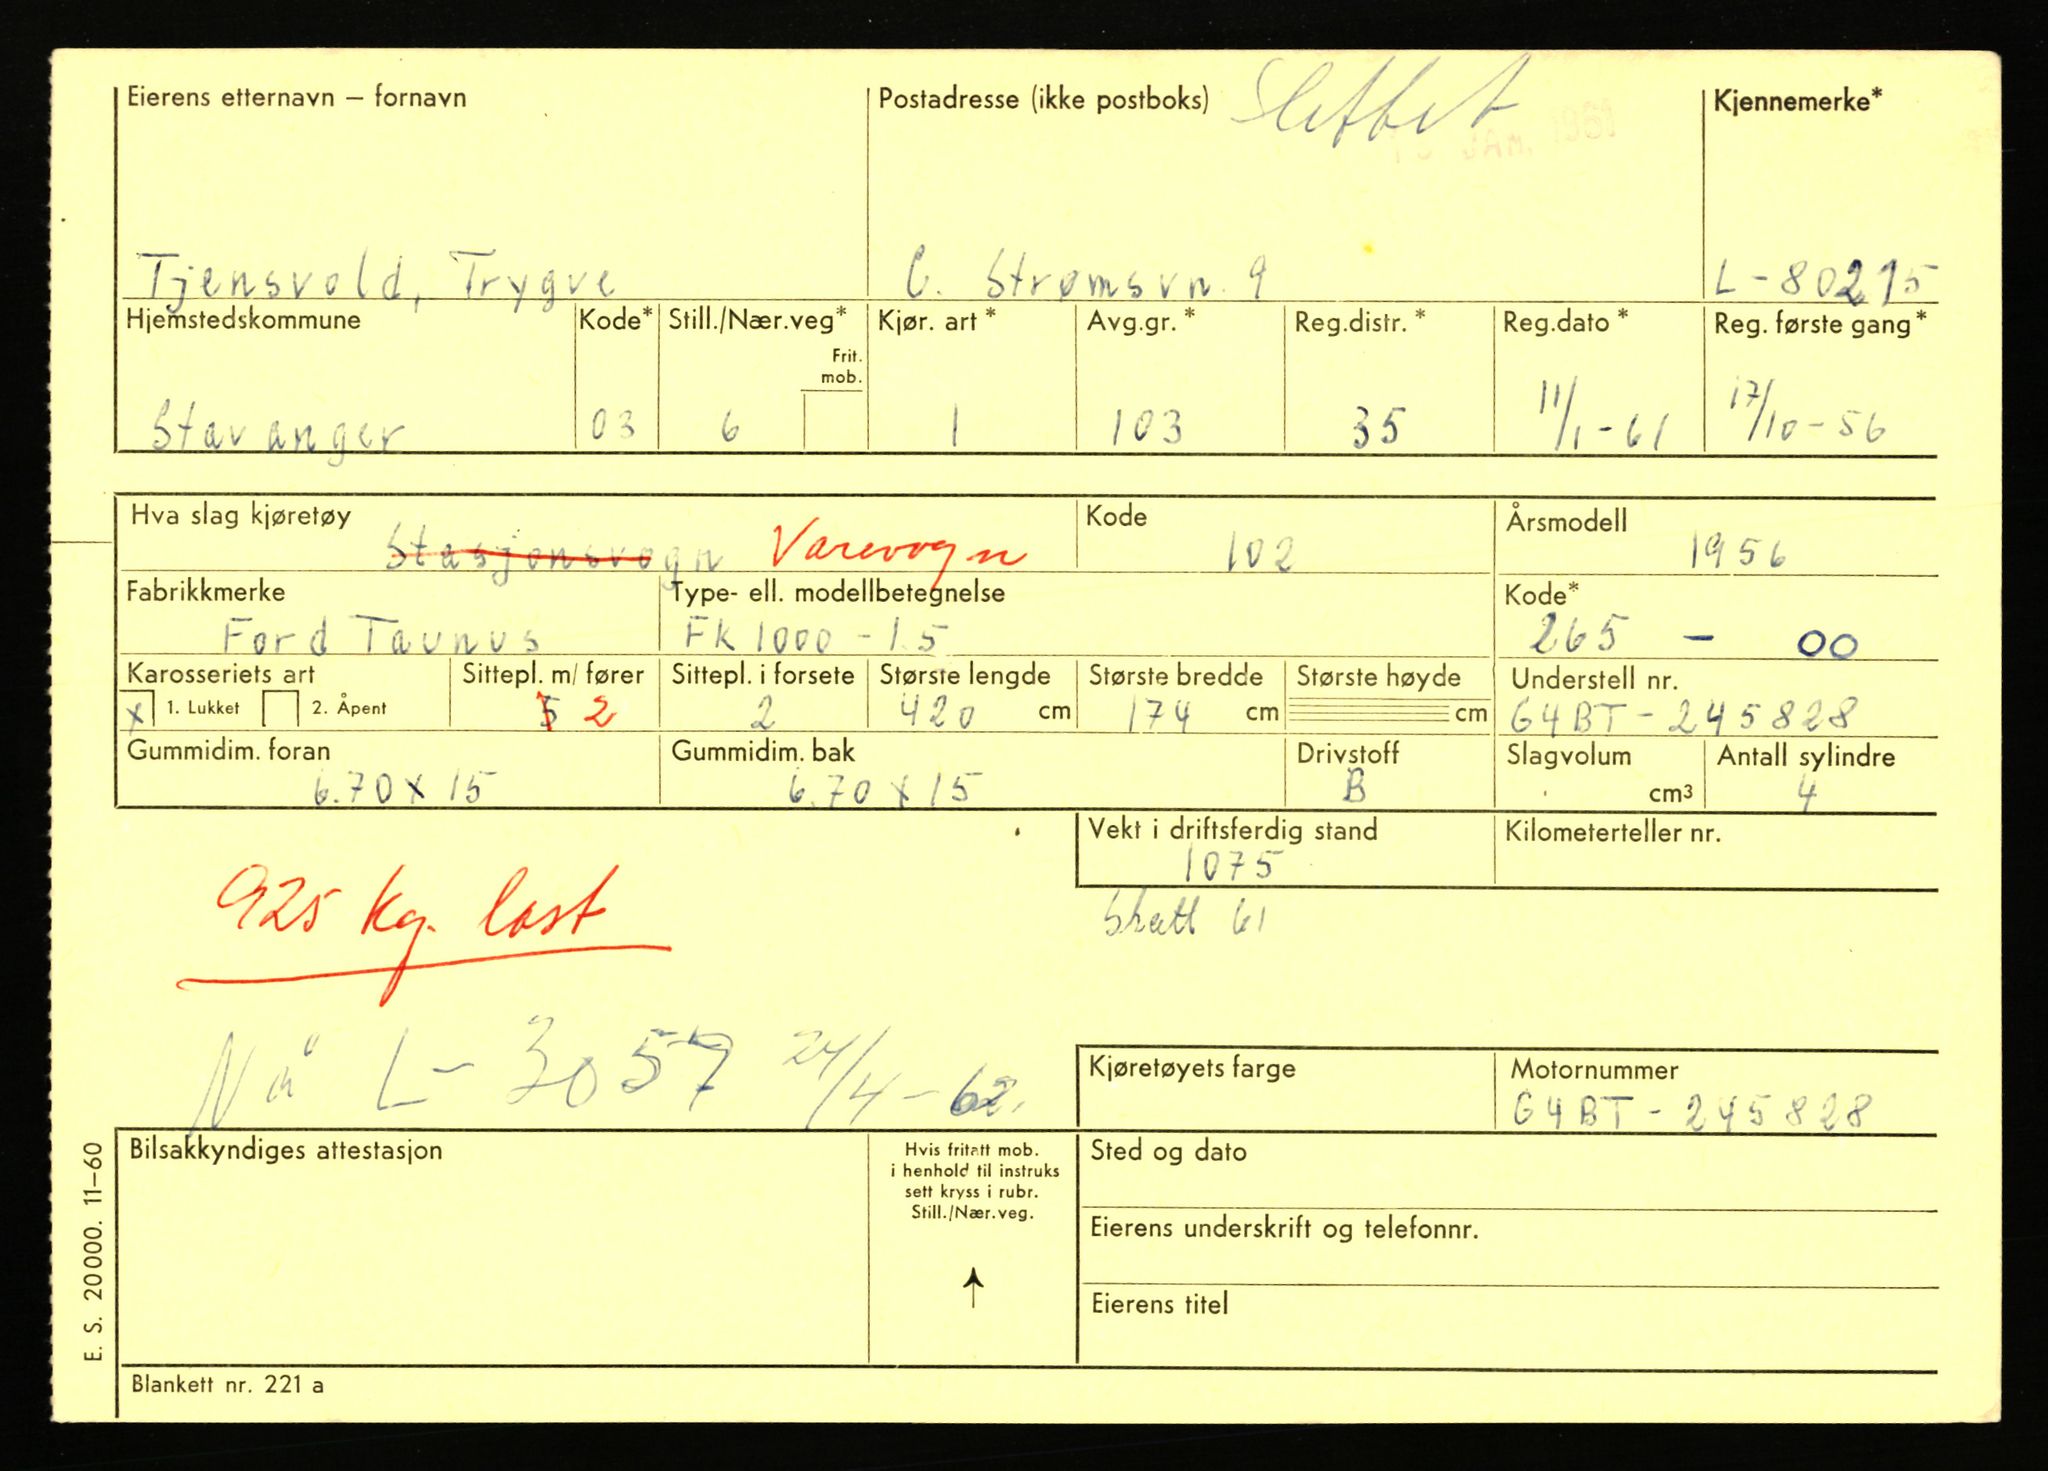 Slettet
Eierens etternavn – fornavn Postadresse (ikke postboks) Kjennemerke*
Tjensvold, Trygve C. Strømsvn. 9 L-80215
Hjemstedskommune Kode* Still./Nær.veg* Kjør. art* Avg.gr.* Reg.distr.* Reg.dato* Reg. første gang*
Frit.
mob.
Stavanger 03 6 1 103 35 11/1-61 17/10-56
Hva slag kjøretøy Kode Årsmodell
Stasjonsvogn Varevogn 102 1956
Fabrikkmerke Type- ell. modellbetegnelse Kode*
Ford Taunus FK 1000 - 1.5 265 - 00
Karosseriets art Sittepl. m/ fører Sittepl. i forsete Største lengde Største bredde Største høyde Understell nr.
x 1. Lukket 2. Åpent 5 2 2 420 cm 174 cm cm G4BT-245828
Gummidim. foran Gummidim. bak Drivstoff Slagvolum Antall sylindre
6.70 x 15 6.70 x 15 B cm³ 4
Vekt i driftsferdig stand Kilometerteller nr.
1075
925 kg. last
Skatt 61
Nå L-3057 24/4-62.
Kjøretøyets farge Motornummer
G4BT-245828
Bilsakkyndiges attestasjon Hvis fritatt mob.
i henhold til instruks
sett kryss i rubr.
Still./Nær.veg.
Sted og dato
Eierens underskrift og telefonnr.
Eierens titel
Blankett nr. 221 a
E. S. 20000. 11-60